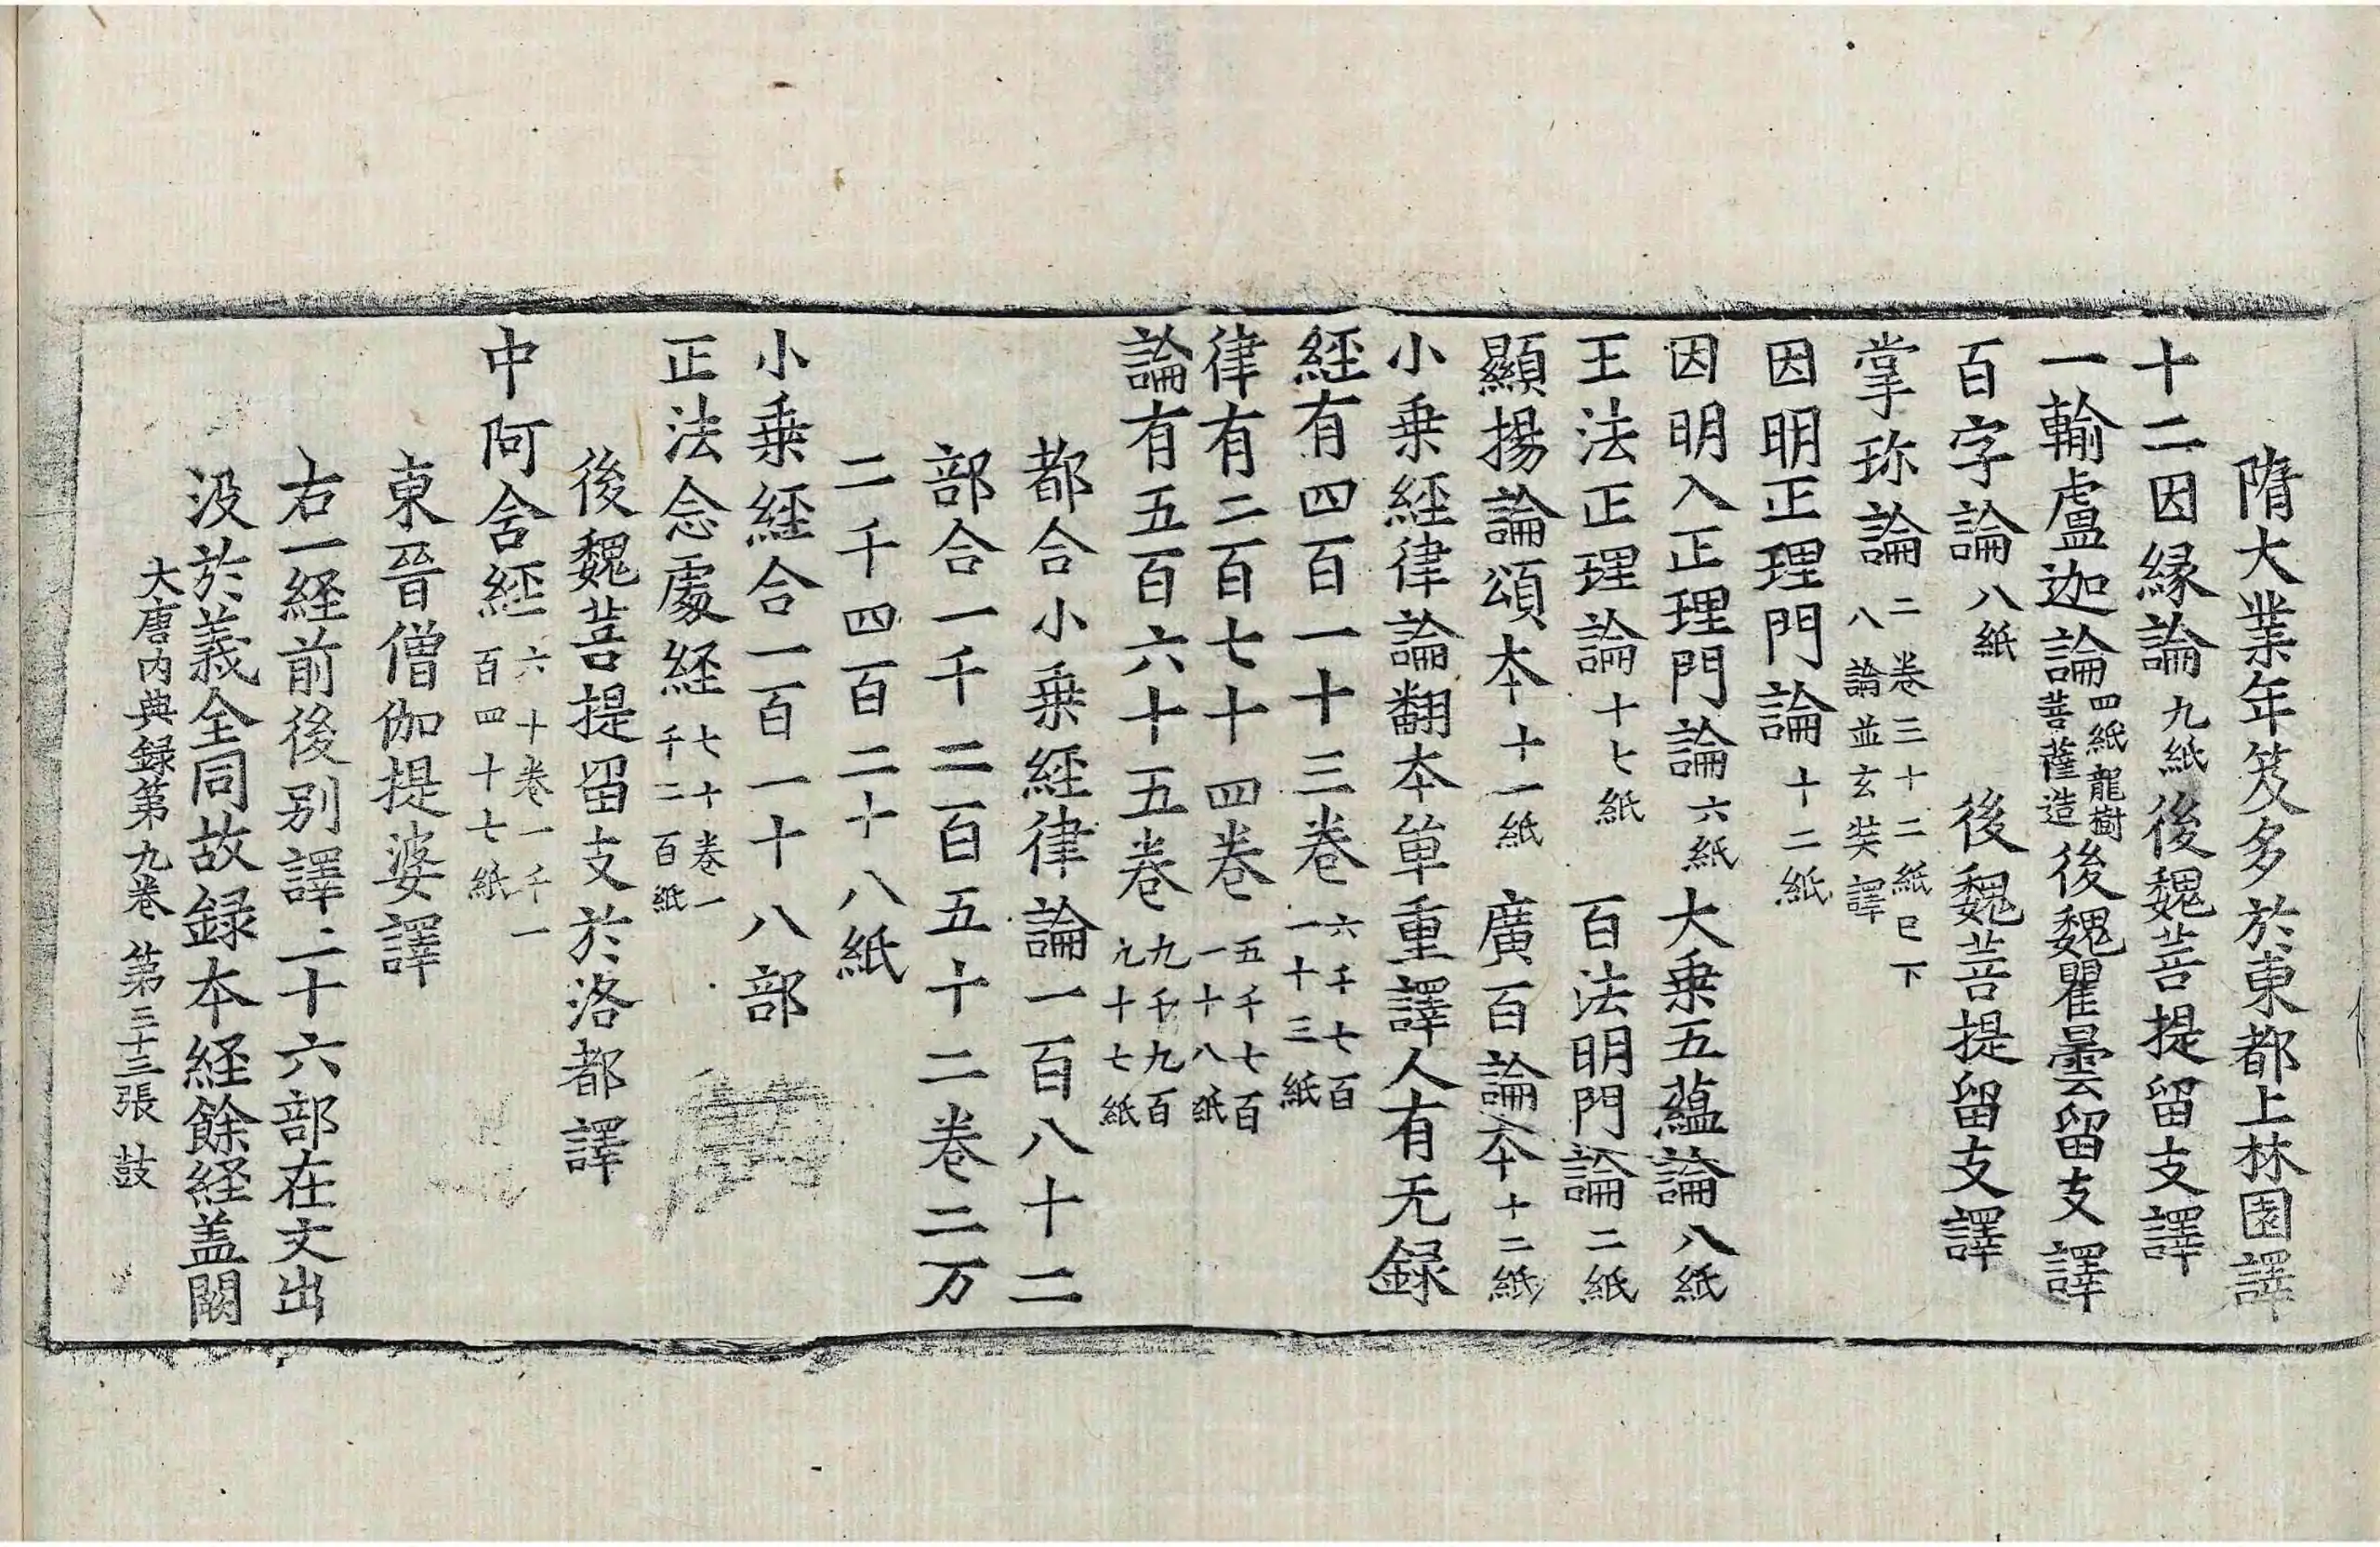 隋大業年笈多於東都上林園譯
十二因縁論九紙後魏菩提留支譯
一輸盧迦論四紙龍樹菩薩造後魏瞿曇留支譯
百字論八紙 後魏菩提留支譯
掌珎論二卷三十二紙巳下八論並玄奘譯
因明正理門論十二紙
因明入正理門論六紙大乗五蘊論八紙
王法正理論十七紙 百法明門論二紙
顯揚論頌本十一紙 廣百論本十二紙
小乗經律論翻本單重譯人有无録
經有四百一十三卷六千七百一十三紙
律有二百七十四卷五千七百一十八紙
論有五百六十五卷九千九百九十七紙
都合小乗經律論一百八十二
部合一千二百五十二卷二万
二千四百二十八紙
小乗經合一百一十八部
正法念處経七十卷一千二百紙
後魏菩提留支於洛都譯
中阿含經六十卷一千一百四十七紙
東晉僧伽提婆譯
右一経前後别譯二十六部在文出
没於義全同故録本経餘経盖闕
大唐内典録第九卷 第三十三張 鼓